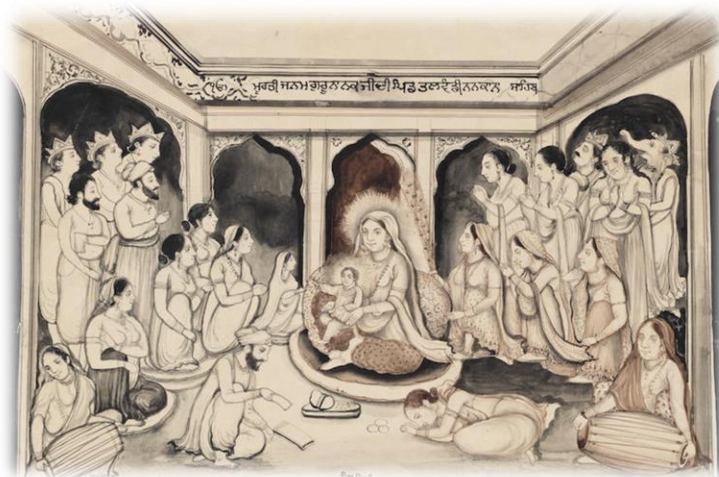 ਮੂਰਤੀ ਜਨਮ ਗੁਰੂ ਨਨਕ ਜੀ ਦੀ ਪਿੰਡ ਤਲਵੰਡੀ ਨਨਕਾਨ ਸਾਹਿਬ